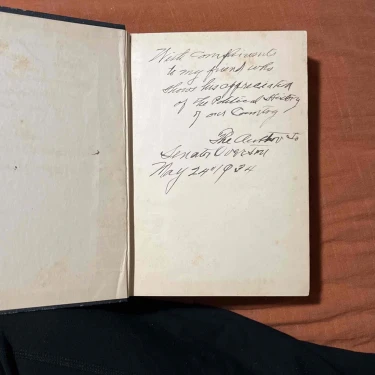 With compliments
to my friend who
shows his appreciation
of the Political History
of our Country
The Author to
Senator Overson
May 24th 1934